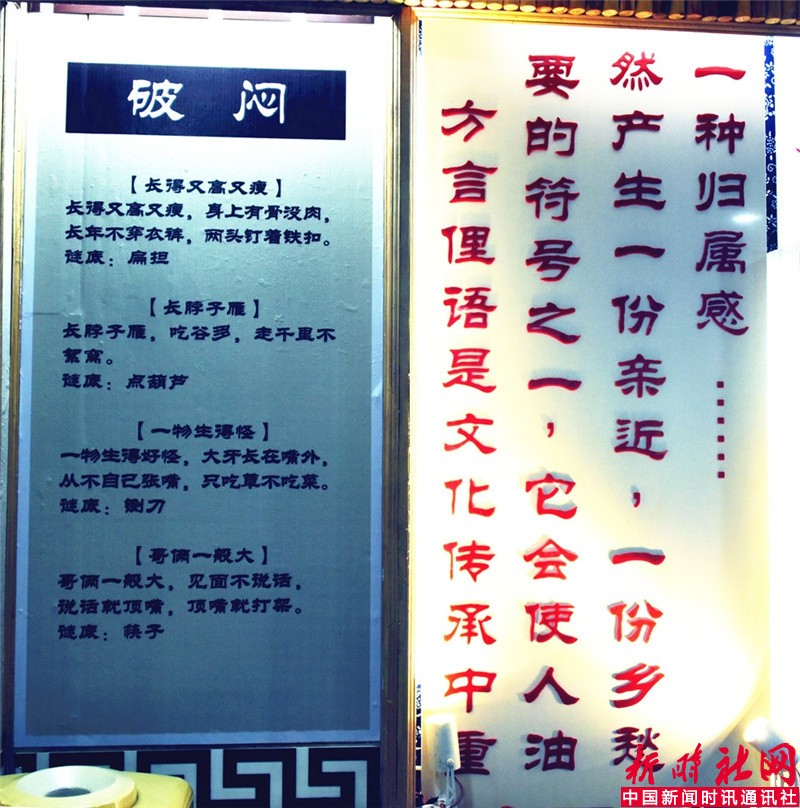 破闷
【长得又高又瘦】
长得又高又瘦，身上有骨没肉，
长年不穿衣裤，两头钉着铁扣。
谜底：扁担
【长脖子雁】
长脖子雁，吃谷多，走千里不
絮窝。
谜底：点葫芦
【一物生得怪】
一物生得好怪，大牙长在嘴外，
从不自己张嘴，只吃草不吃菜。
谜底：铡刀
【哥俩一般大】
哥俩一般大，见面不说话，
说话就顶嘴，顶嘴就打架。
谜底：筷子
方言俚语是文化传承中重
要的符号之一，它会使人油
然产生一份亲近，一份乡愁
一种归属感……
新时社网
中国新闻时讯通讯社